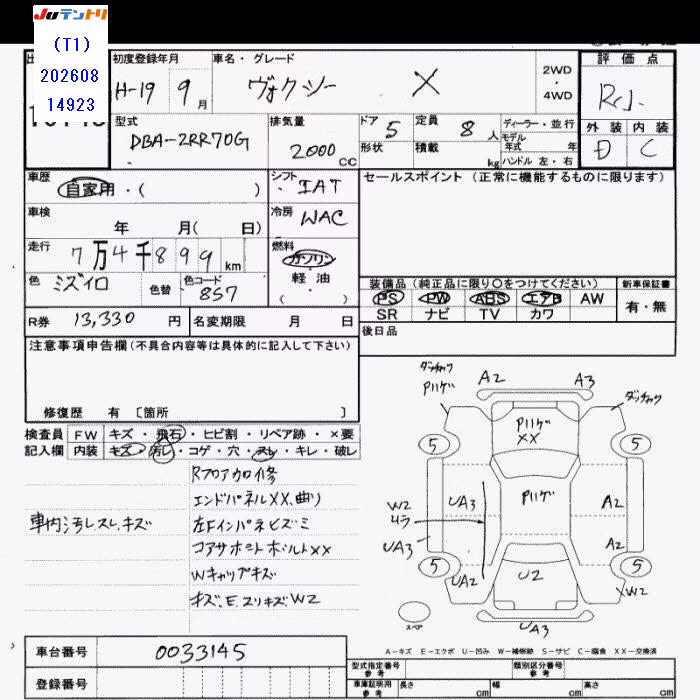 Juテントリ
(T1)
202608
14923
初度登録年月
H-19 9月
車名・グレード
ヴォクシー X
2WD
・
4WD
評価点
R
外装 内装
D C
型式
DBA-ZRR70G
排気量
2000 CC
ドア 5
形状
定員 8人
積載 kg
ディーラー・並行
モデル
年式 年
ハンドル 左・右
車歴
自家用・( )
シフト
IAT
セールスポイント (正常に機能するものに限ります)
車検
年 月( 日)
冷房
WAC
走行
7万4千899km
燃料
ガソリン
軽・油
( )
色
ミズイロ
色替
色コード
8S7
装備品 (純正品に限り〇をつけてください)
PS PW ABS エアB AW
SR ナビ TV カワ
新車保証書
有・無
R券 13,330円
名変期限 月 日
後日品
注意事項申告欄(不具合内容等は具体的に記入して下さい)
修復歴 有 〔箇所 〕
検査員
記入欄
FW キズ・飛石・ヒビ割・リペア跡・×要
内装 キズ・汚レ・コゲ・穴・スレ・キレ・破レ
車内汚レ.スレ.キズ
Rフロアカロ修
エンドパネルXX、曲リ
左Fインパネヒズミ
コアサポートボルトXX
Wキャップキズ
キズ、E、スリキズ、W2
A2 A3
P
XX
P
5 5
UA3 A2
W2
UA3
A2
5 5
UA2 U2 XW2
UA3
スペア
A-キズ E-エクボ U-凹み W-補修跡 S-サビ C-腐食 XX-交換済
車台番号 0033145
登録番号
型式指定番号
参考
類別区分番号
参考
車庫証明用
参考
長さ cm 幅 cm 高さ cm